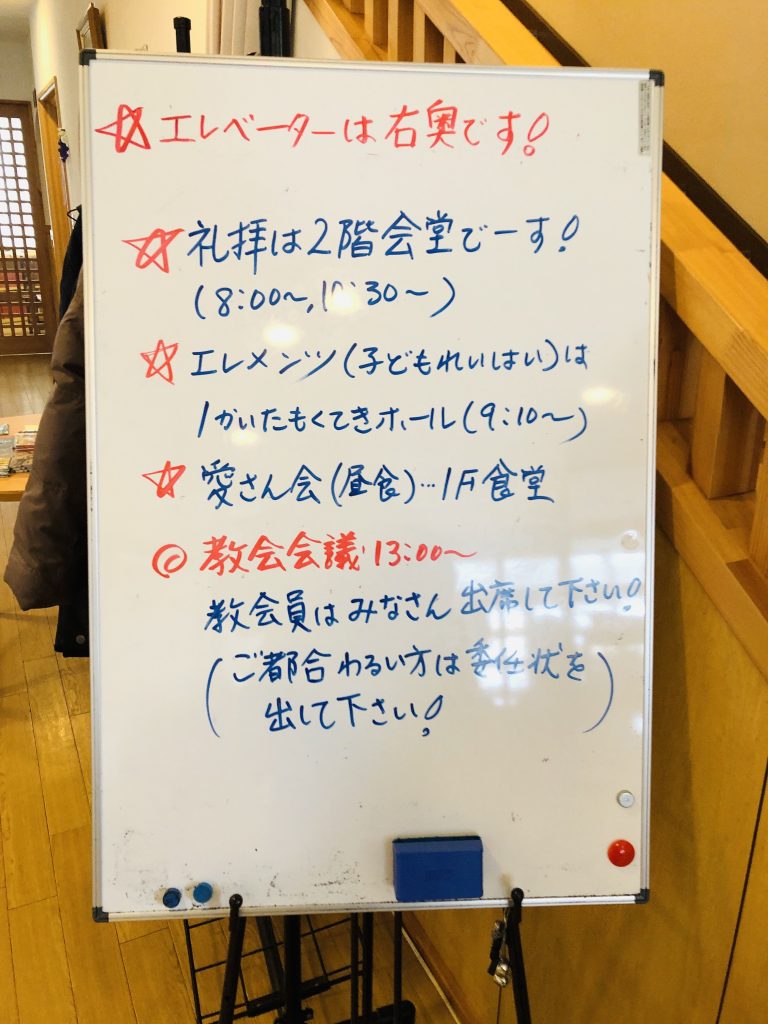 ☆エレベーターは右奥です!
☆礼拝は2階会堂でーす!
(8:00〜,10:30〜)
☆エレメンツ(子どもれいはい)は
1かいたもくてきホール(9:10〜)
☆愛さん会(昼食)…1F食堂
◎教会会議13:00〜
教会員はみなさん出席して下さい!
(ご都合わるい方は委任状を
出して下さい!)